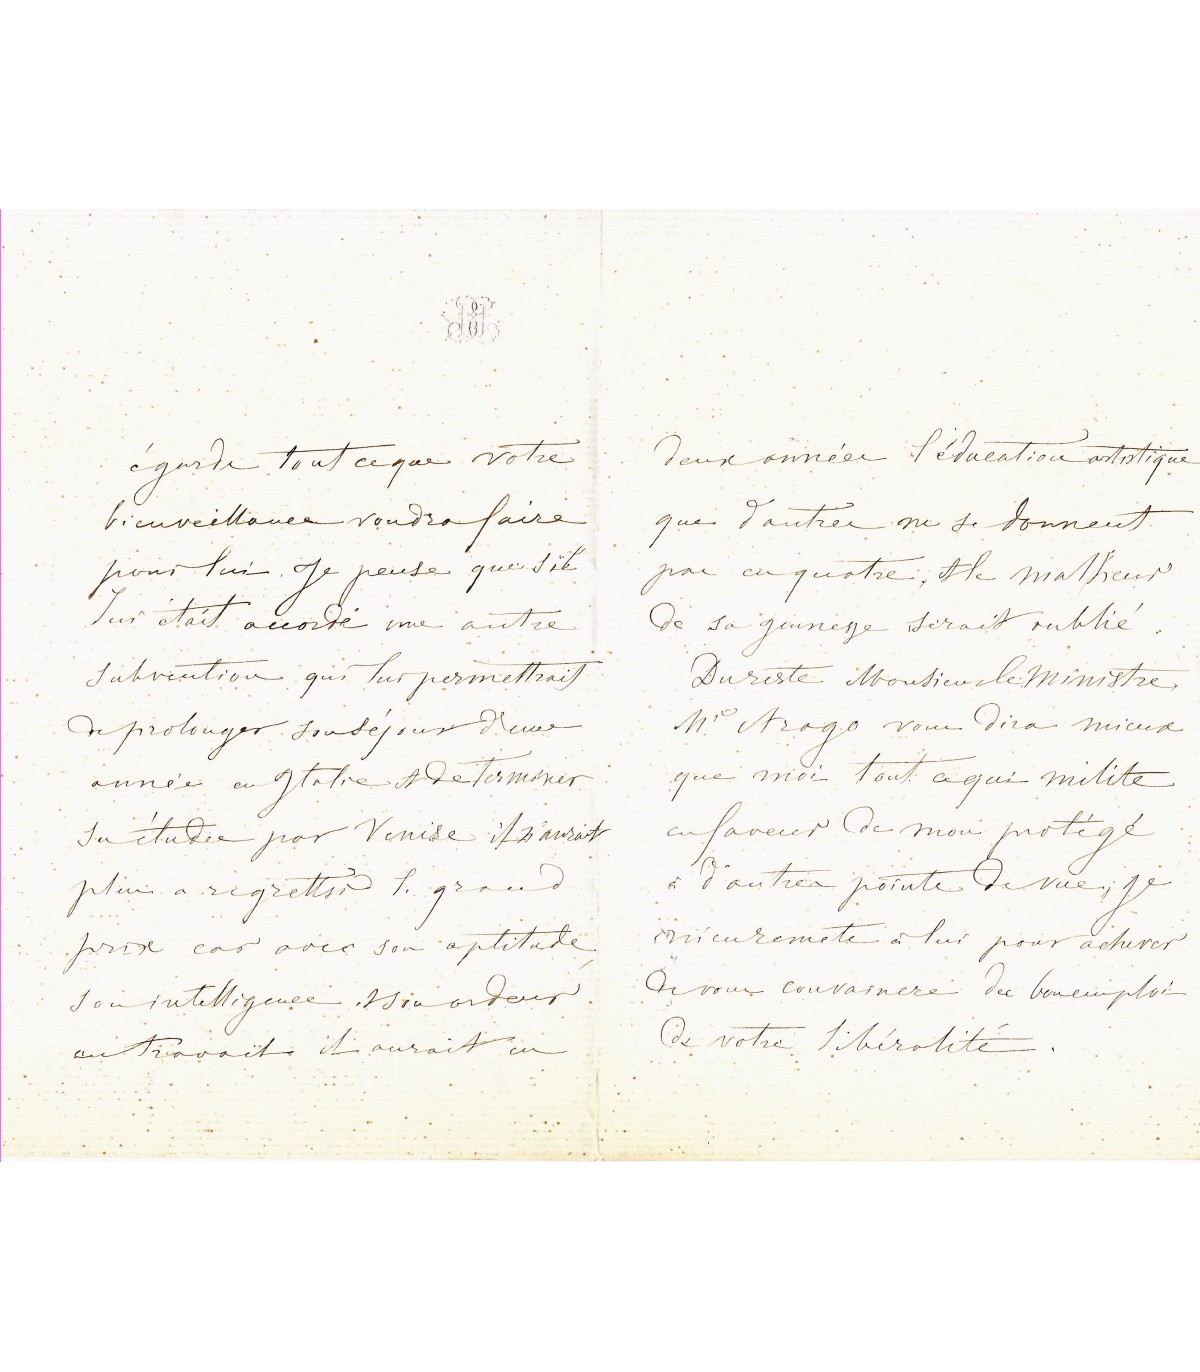 égards tout ce que votre
bienveillance voudra faire
pour lui. Je pense que s'il
lui était accordé une autre
subvention qui lui permettrait
de prolonger son séjour d'une
année en Italie & de terminer
ses études par Venise il n'aurait
plus a regretter le grand
prix car avec son aptitude,
son intelligence & son ardeur
au travail il aurait en
deux années l'éducation artistique
que d'autres ne se donnent
pas en quatre, & le malheur
de sa jeunesse serait oublié.
Du reste Monsieur le Ministre,
Mr Arago vous dira mieux
que moi tout ce qui milite
en faveur de mon protégé
à d'autres points de vue; je
m'en remets à lui pour achever
de vous convaincre du bon emploi
de votre libéralité.